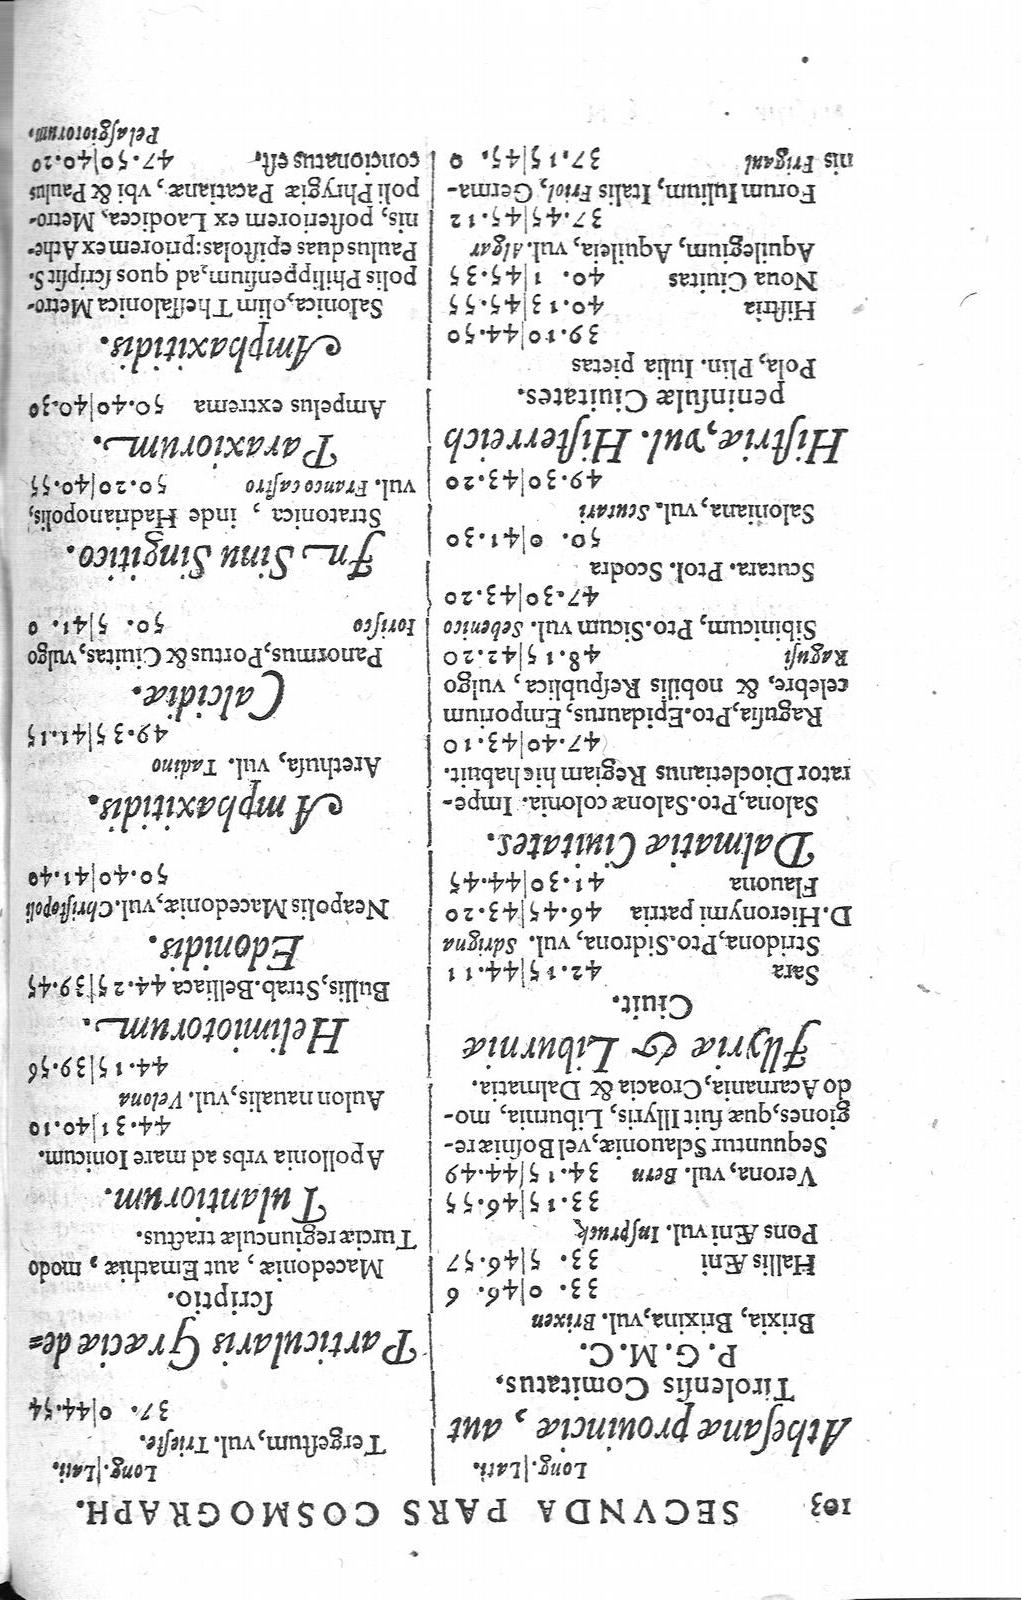 103 SECVNDA PARS COSMOGRAPH.
Long.|Lati.
Atheſanæ prouinciæ, aut
Tirolenſis Comitatus.
P. G. M. C.
Brixia, Brixina, vul. Brixen
33. 0|46. 6
Hallis Æni 33. 5|46.57
Pons Æni vul. Inſpruck
33.15|46.55
Verona, vul. Bern 34.15|44.49
Sequuntur Sclauoniæ, vel Boſniæ re-
giones, quæ fuit Illyris, Liburnia, mo-
do Acarnania, Croacia & Dalmatia.
Illyriæ & Liburniæ
Ciuit.
Sara 42.15|44.11
Stridona, Pto. Sidrona, vul. Sdrigna
D. Hieronymi patria 46.45|43.20
Flauona 41.30|44.45
Dalmatiæ Ciuitates.
Salona, Pto. Salonæ colonia. Impe-
rator Diocletianus Regiam hic habuit.
47.40|43.10
Raguſia, Pto. Epidaurus, Emporium
celebre, & nobilis Reſpublica, vulgo
Raguſi 48.15|42.20
Sibinicum, Pto. Sicum vul. Sebenico
47.30|43.20
Scutara. Ptol. Scodra
50. 0|41.30
Saloniana, vul. Scutari
49.30|43.20
Hiſtriæ, vul. Hiſterreich
peninſulæ Ciuitates.
Pola, Plin. Iulia pietas
39.10|44.50
Hiſtria 40.13|45.55
Noua Ciuitas 40. 1|45.35
Aquilegium, Aquileia, vul. Aglar
37.45|45.12
Forum Iulium, Italis Friol, Germa-
nis Frigaul 37.15|45. 0
Long.|Lati.
Tergeſtum, vul. Trieſte.
37. 0|44.54
Particularis Græciæ de-
ſcriptio.
Macedoniæ, aut Emathiæ, modo
Turciæ regiunculæ tractus.
Tulantiorum.
Apollonia vrbs ad mare Ionicum.
44.31|40.10
Aulon naualis, vul. Velona
44.15|39.56
Helimiotorum.
Bullis, Strab. Belliaca 44.25|39.45
Edonidis.
Neapolis Macedoniæ, vul. Chriſtopoli
50.40|41.40
Amphaxitidis.
Arethuſa, vul. Tadino
49.35|41.15
Calcidiæ.
Panormus, Portus & Ciuitas, vulgo
ioriſco 50. 5|41. 0
In Sinu Singitico.
Stratonica, inde Hadrianopolis,
vul. Franco caſtro 50.20|40.55
Paraxiorum.
Ampelus extrema 50.40|40.30
Amphaxitidis.
Salonica, olim Theſſalonica Metro-
polis Philippenſium, ad quos ſcripſit S.
Paulus duas epiſtolas: priorem ex Athe-
nis, poſteriorem ex Laodicea, Metro-
poli Phrygiæ Pacatianæ, vbi & Paulus
concionatus eſt. 47.50|40.20
Pelaſgiotorum.